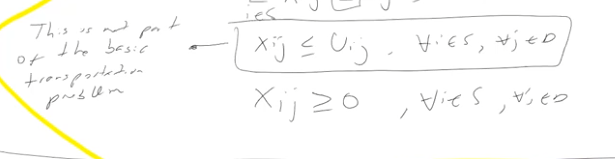 i∈S
This is not part
of the basic
transportation
problem
Xij ≤ Uij , ∀i∈S, ∀j∈D
Xij ≥ 0 , ∀i∈S, ∀j∈D